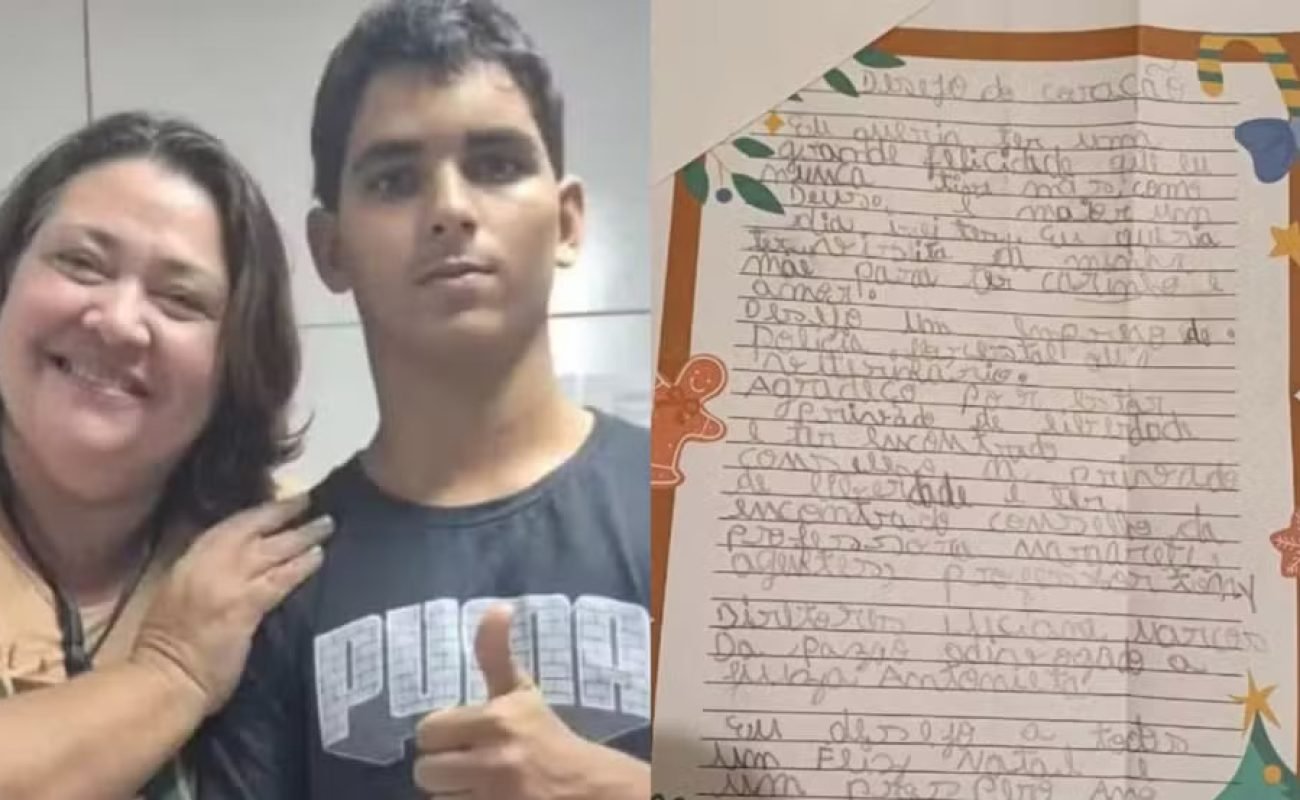 PUMA
Desejo do coração
Eu queria ter um
grande felicidade que eu
nunca tive mas como
Deuso e maior um
dia irei ter, eu queria
ter vizita di minha
mãe para ter carinho e
amor.
Desejo um de
policia
Agradeço por estar
privado de liberdade
e ter encontrado
conselho na privado
de liberdade e ter
encontrado conselho da
professora
agentes professor
Diretores Marcos
Da a
juiza Antonieta
Eu desejo a todos
um Feliz Natal e
um prospero Ano